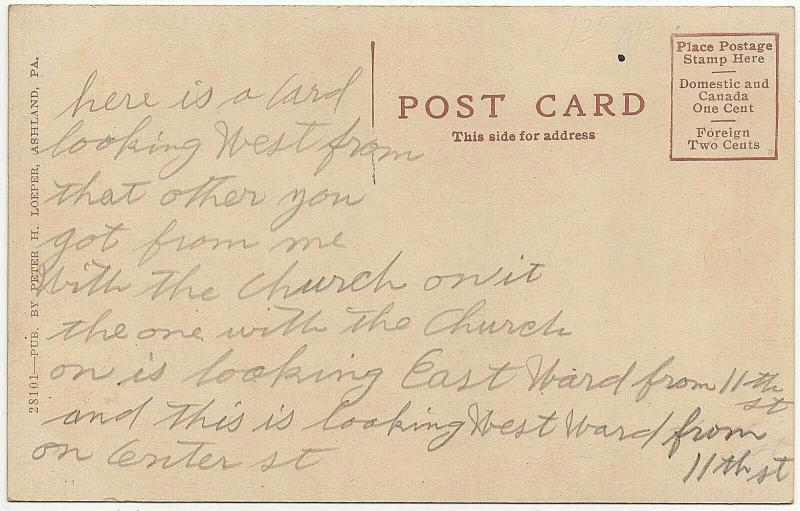 28101—PUB. BY PETER H. LOEPER, ASHLAND, PA.
POST CARD
This side for address
Place Postage
Stamp Here
Domestic and
Canada
One Cent
Foreign
Two Cents
here is a Card
looking West from
that other you
got from me
With the Church on it
the one with the Church
on is looking East Ward from 11th
st
and this is looking West Ward from
11th st
on Center st